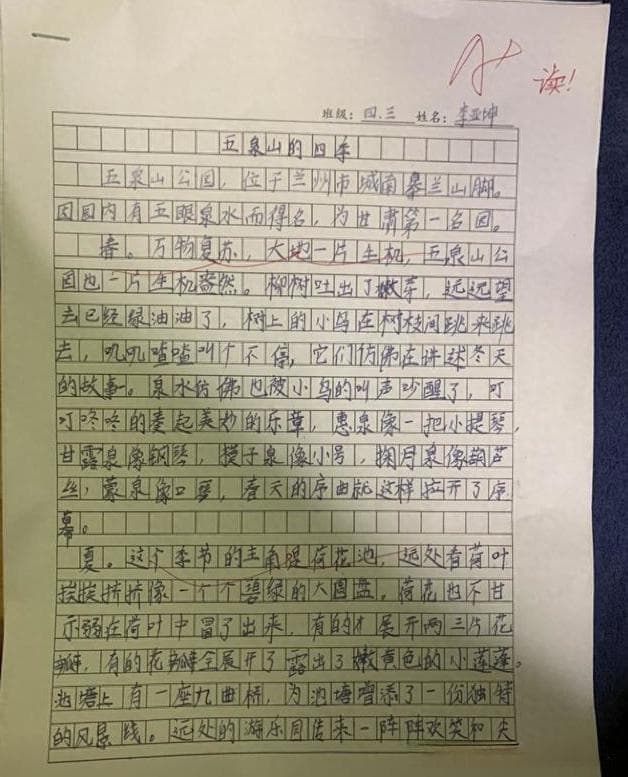 A+
读!
班级：四.三 姓名：李亚坤
五泉山的四季
五泉山公园，位于兰州市城南皋兰山脚。
因园内有五眼泉水而得名，为甘肃第一名园。
春。万物复苏，大地一片生机，五泉山公
园也一片生机盎然。柳树吐出了嫩芽，远远望
去已经绿油油了，树上的小鸟在树枝间跳来跳
去，叽叽喳喳叫个不停，它们仿佛在讲述冬天
的故事。泉水仿佛也被小鸟的叫声吵醒了，叮
叮咚咚的奏起美妙的乐章，惠泉像一把小提琴，
甘露泉像钢琴，摸子泉像小号，掬月泉像葫芦
丝，蒙泉像口琴，春天的序曲就这样拉开了序
幕。
夏。这个季节的主角是荷花池，远处看荷叶
挨挨挤挤像一个个碧绿的大圆盘。荷花也不甘
示弱在荷叶中冒了出来，有的才展开两三片花
瓣，有的花瓣全展开了露出了嫩黄色的小莲蓬。
池塘上有一座九曲桥，为池塘增添了一份独特
的风景线。远处的游乐园传来一阵阵欢笑和尖